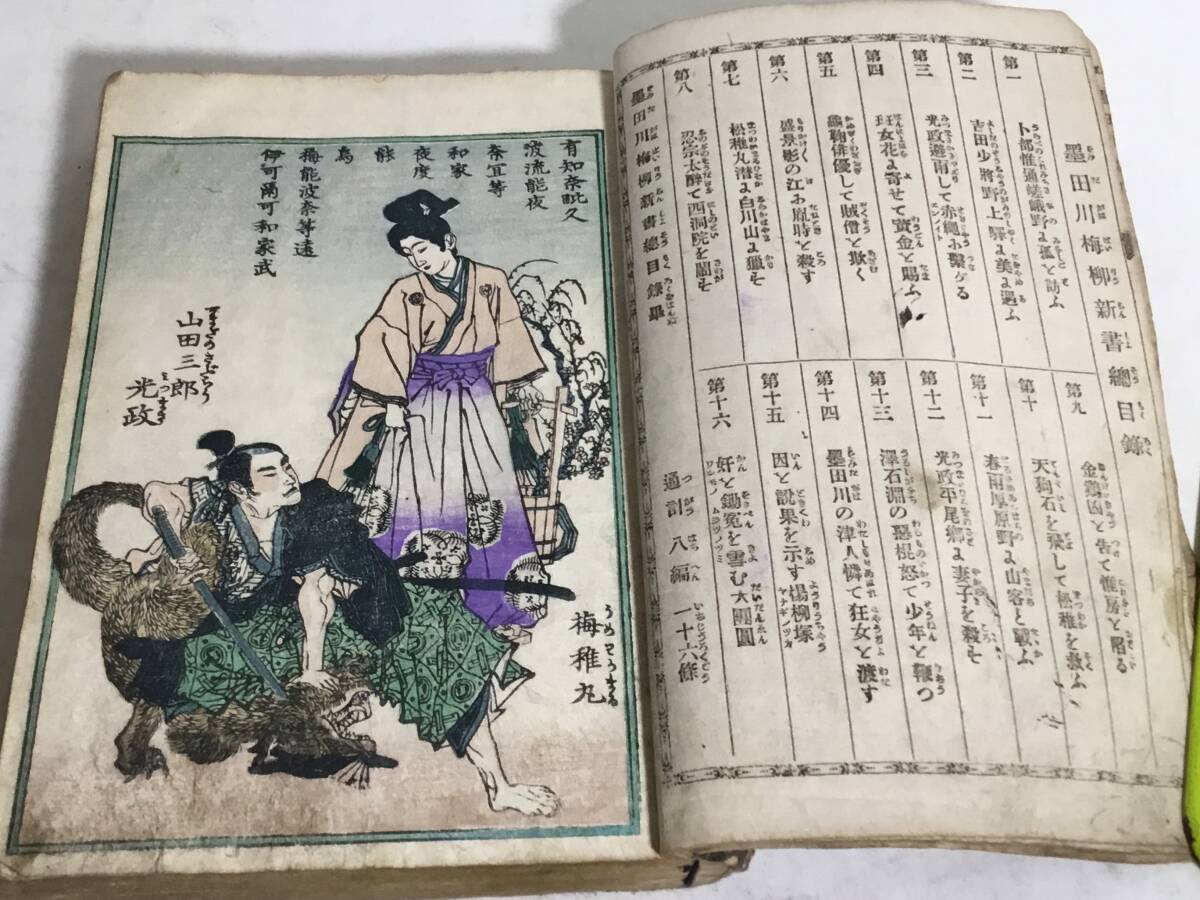 墨田川梅柳新書總目錄
第一 卜部惟通嵯峨野に孤を訪ふ
第二 吉田少將野上驛に美に遇ふ
第三 光政避雨して赤繩に繫がる
第四 班女花に寄せて寳金を賜ふ
第五 龜鞠俳優して賊僧を欺く
第六 盛景影の江に胤時を殺す
第七 松稚丸潜に白川山に獵す
第八 忍宗太醉て西洞院を鬧す
墨田川梅柳新書總目錄畢
第九 金鷄凶を告て惟房を陷る
第十 天狗石を飛して松稚を救ふ
第十一 春雨厚原野に山客と戰ふ
第十二 光政平尾鄕に妻子を殺す
第十三 澤石淵の惡棍怒て少年を鞭つ
第十四 墨田川の津人憐て狂女を渡す
第十五 因を說果を示す楊柳塚
第十六 奸を鋤寃を雪む大團圓
通計八編一十六條
有知奈毗久
波流能夜
奈宜等
和家
夜度
能
烏
梅能波奈等遠
伊可爾可和家武
山田三郎
光政
梅稚丸